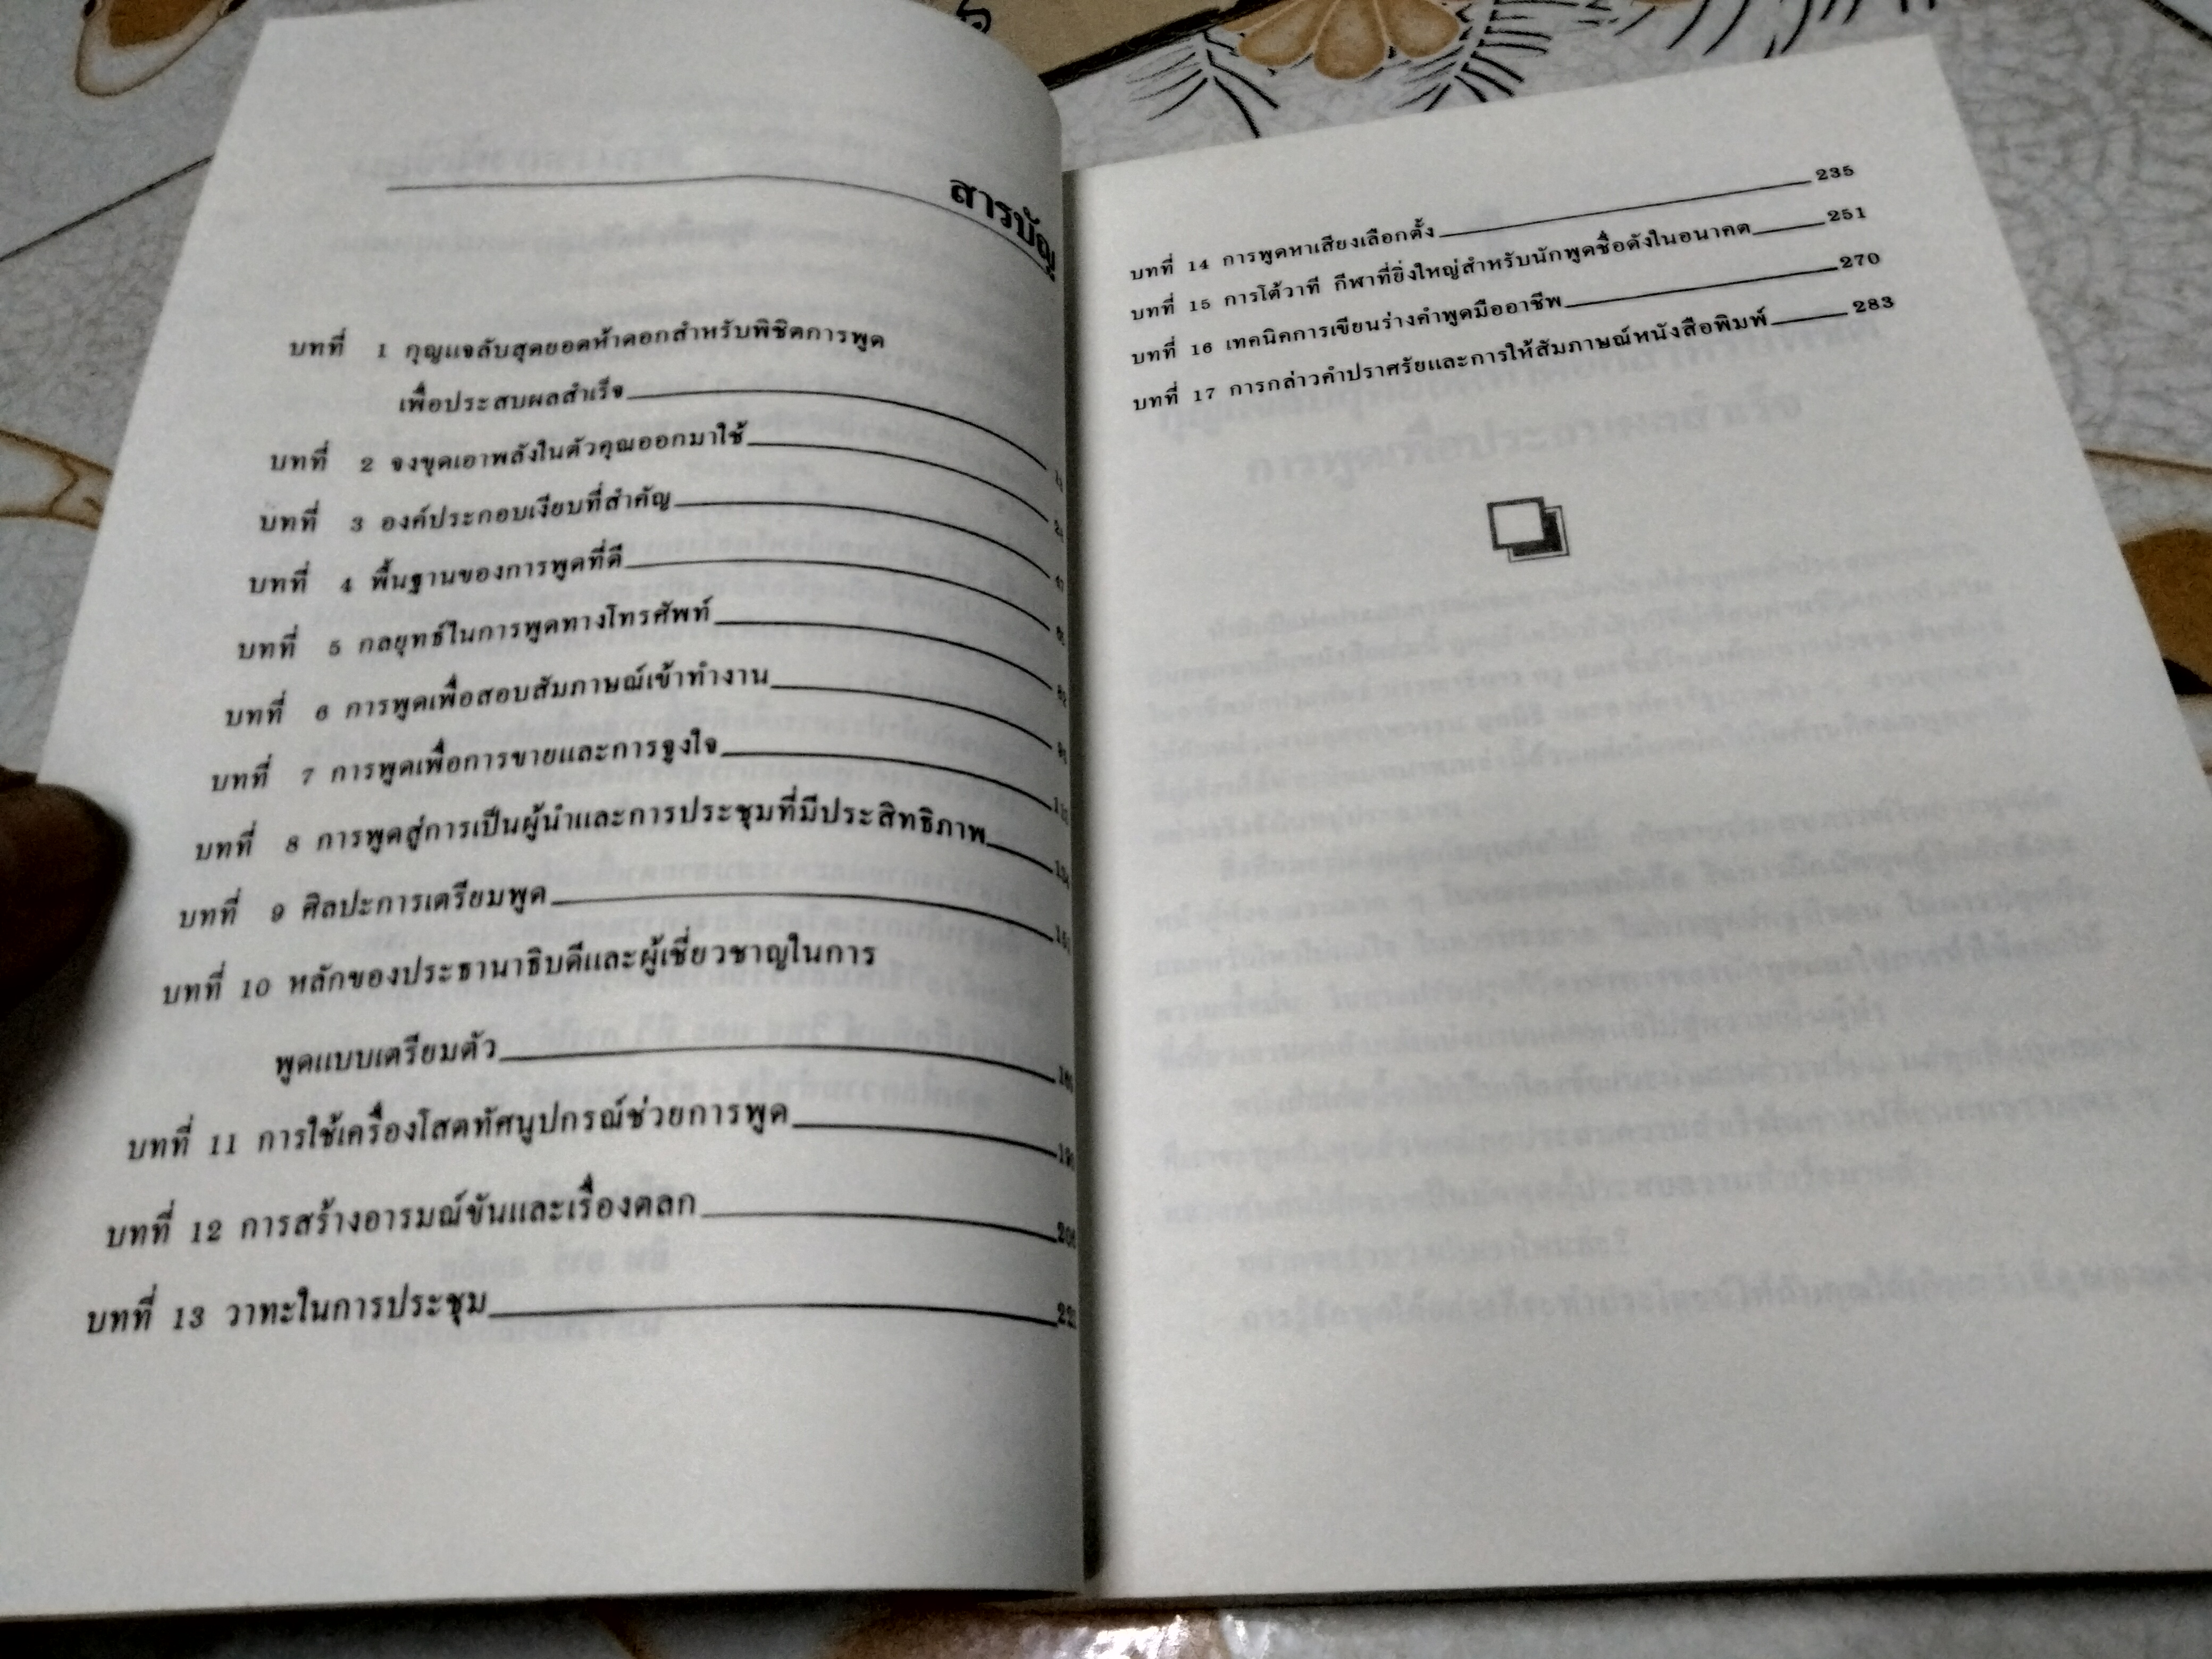 สารบัญ
บทที่ 1 กุญแจลับสุดยอดห้าดอกสำหรับพิชิตการพูด
เพื่อประสบผลสำเร็จ
บทที่ 2 จงขุดเอาพลังในตัวคุณออกมาใช้
บทที่ 3 องค์ประกอบเงียบที่สำคัญ
บทที่ 4 พื้นฐานของการพูดที่ดี
บทที่ 5 กลยุทธ์ในการพูดทางโทรศัพท์
บทที่ 6 การพูดเพื่อสอบสัมภาษณ์เข้าทำงาน
บทที่ 7 การพูดเพื่อการขายและการจูงใจ
บทที่ 8 การพูดสู่การเป็นผู้นำและการประชุมที่มีประสิทธิภาพ
บทที่ 9 ศิลปะการเตรียมพูด
บทที่ 10 หลักของประธานาธิบดีและผู้เชี่ยวชาญในการ
พูดแบบเตรียมตัว
บทที่ 11 การใช้เครื่องโสตทัศนูปกรณ์ช่วยการพูด
บทที่ 12 การสร้างอารมณ์ขันและเรื่องตลก
บทที่ 13 วาทะในการประชุม
บทที่ 14 การพูดหาเสียงเลือกตั้ง 235
บทที่ 15 การโต้วาที กีฬาที่ยิ่งใหญ่สำหรับนักพูดชื่อดังในอนาคต 251
บทที่ 16 เทคนิคการเขียนร่างคำพูดมืออาชีพ 270
บทที่ 17 การกล่าวคำปราศรัยและการให้สัมภาษณ์หนังสือพิมพ์ 283